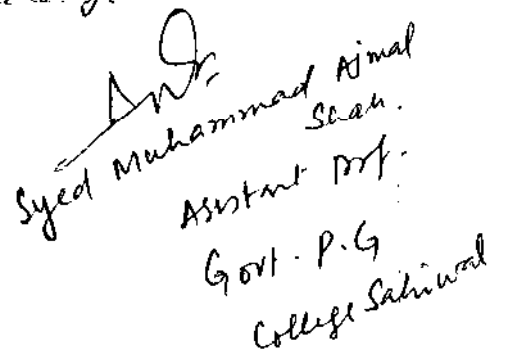 Syed Muhammad Ajmal
Shah.
Asistant Prof.
Govt. P.G
College Sahiwal